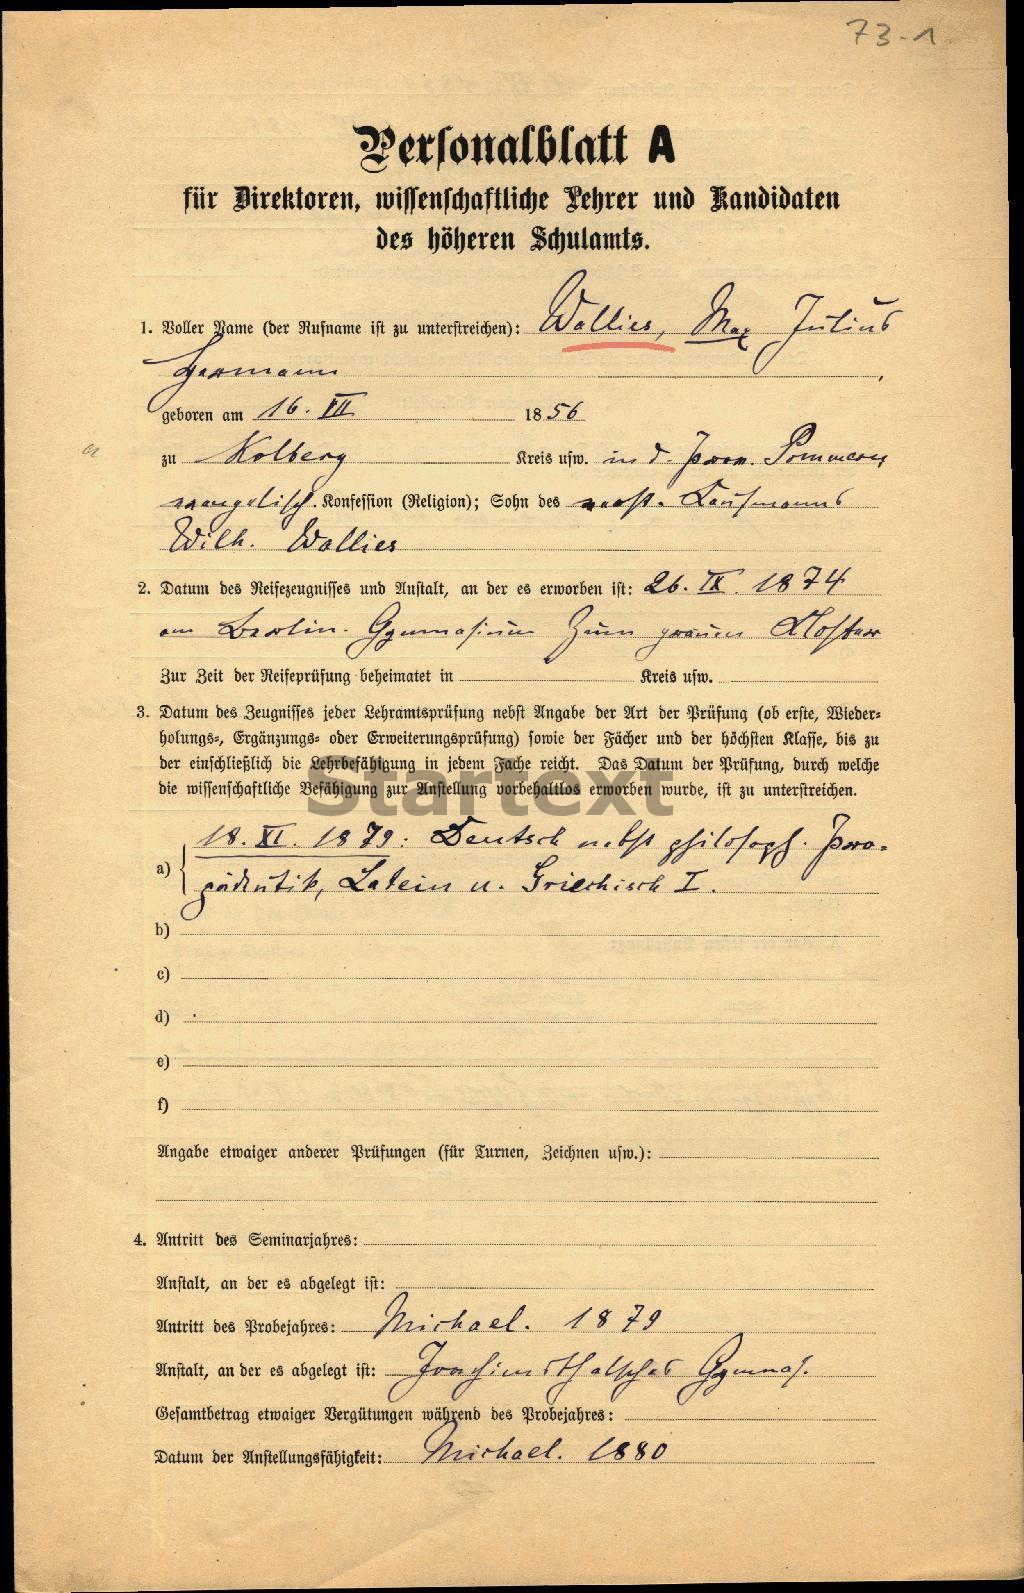 73-1
Personalblatt A
für Direktoren, wissenschaftliche Lehrer und Kandidaten
des höheren Schulamts.
1. Voller Name (der Rufname ist zu unterstreichen): Wallies, Max Julius
Hermann
geboren am 16. VII 1856
zu Kolberg Kreis usw. in d. Prov. Pommern
evangelisch. Konfession (Religion); Sohn des verst. Kaufmanns
Wilh. Wallies
2. Datum des Reifezeugnisses und Anstalt, an der es erworben ist: 26. IX. 1874
am Berlin. Gymnasium zum grauen Kloster
Zur Zeit der Reifeprüfung beheimatet in Kreis usw.
3. Datum des Zeugnisses jeder Lehramtsprüfung nebst Angabe der Art der Prüfung (ob erste, Wieder-
holungs-, Ergänzungs- oder Erweiterungsprüfung) sowie der Fächer und der höchsten Klasse, bis zu
der einschließlich die Lehrbefähigung in jedem Fache reicht. Das Datum der Prüfung, durch welche
die wissenschaftliche Befähigung zur Anstellung vorbehaltlos erworben wurde, ist zu unterstreichen.
Startext
18. XI. 1879: Deutsch nebst philosoph. Pro-
a) pädeutik, Latein u. Griechisch I.
b)
c)
d)
e)
f)
Angabe etwaiger anderer Prüfungen (für Turnen, Zeichnen usw.):
4. Antritt des Seminarjahres:
Anstalt, an der es abgelegt ist:
Antritt des Probejahres: Michael. 1879
Anstalt, an der es abgelegt ist: Joachimsthalsches Gymnas.
Gesamtbetrag etwaiger Vergütungen während des Probejahres:
Datum der Anstellungsfähigkeit: Michael. 1880